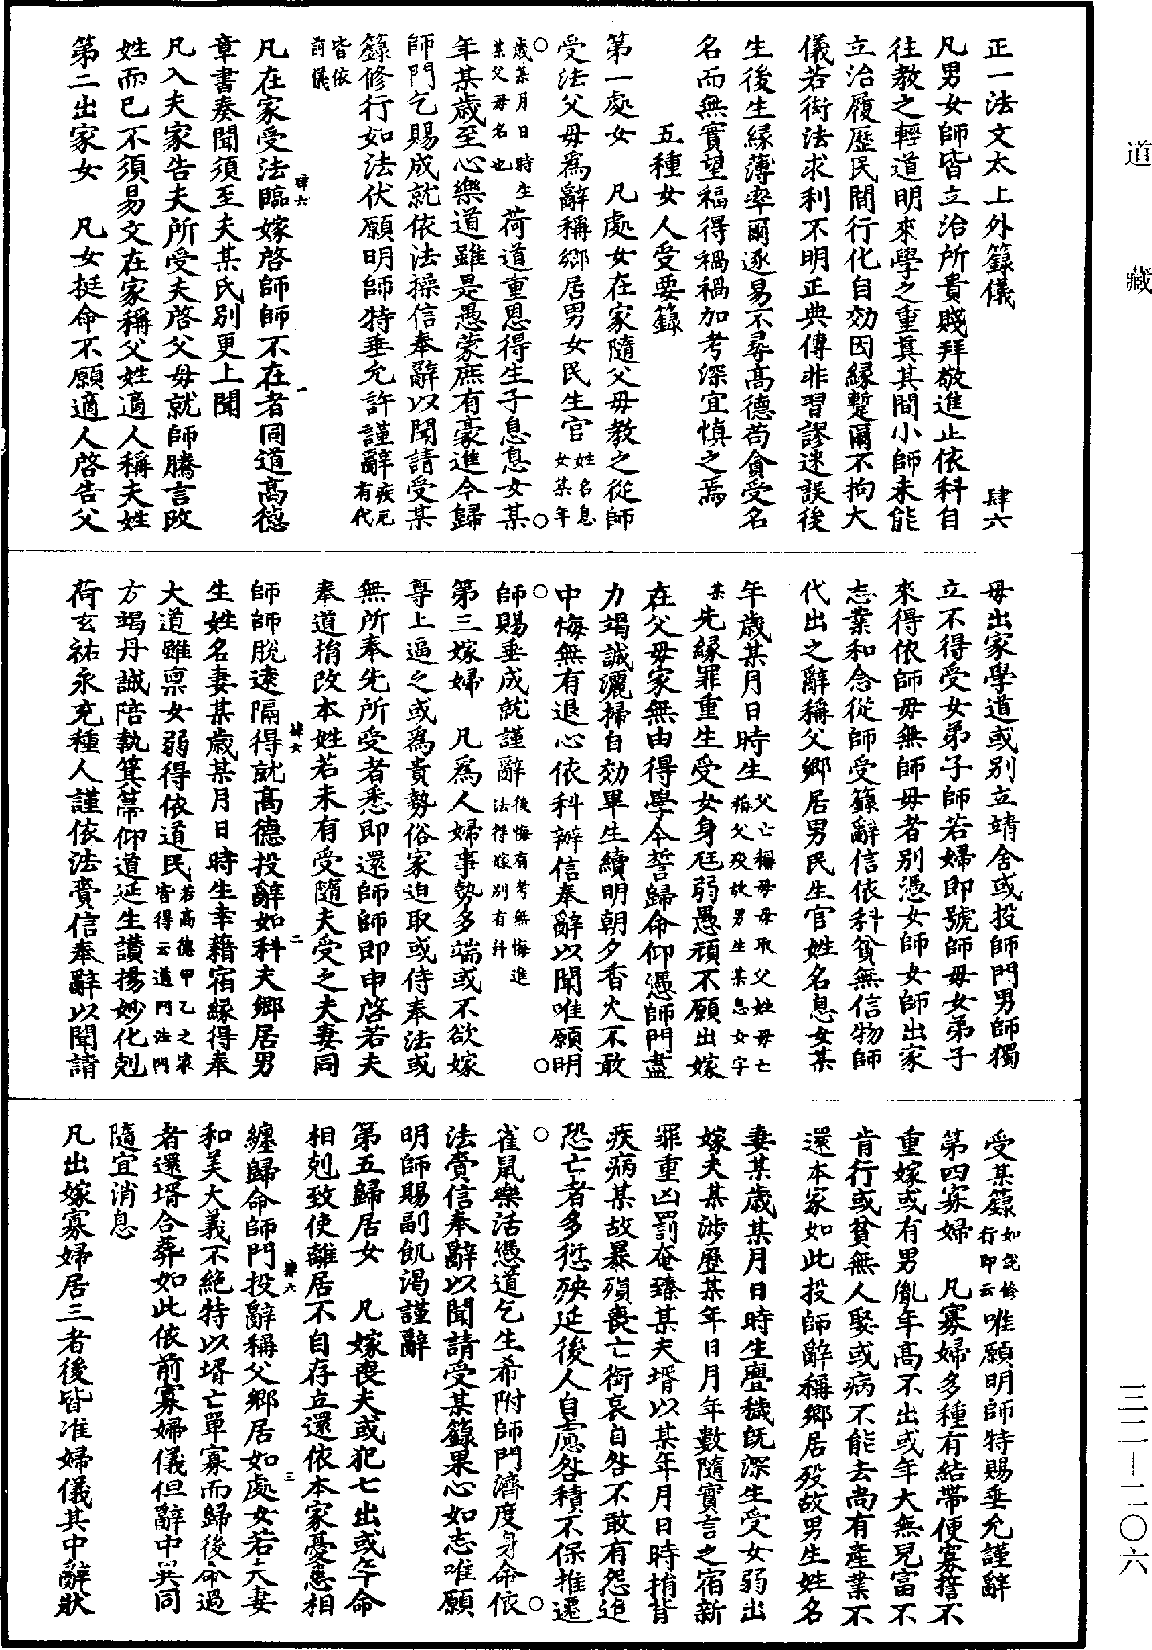 道藏
三二—二〇六
正一法文太上外籙儀 肆六
凡男女師皆立治所貴賤拜敬進止依科自
往教之輕道明來學之重真其間小師未能
立治履歷民間行化自效因緣蹔爾不拘大
儀若衒法求利不明正典傳非習謬迷誤後
生後生緣薄率爾逐易不尋高德苟貪受名
名而無實望福得禍禍加考深宜慎之焉
五種女人受要籙
第一處女 凡處女在家隨父母教之從師
受法父母為辭稱鄉居男女民生官姓名息女某年
歲某月日時生某父母名也荷道重恩得生子息息女某
年某歲至心樂道雖是愚蒙庶有豪進今歸
師門乞賜成就依法操信奉辭以聞請受某
籙修行如法伏願明師特垂允許謹辭疾厄有代
皆依前儀
凡在家受法臨嫁啓師師不在者同道高德
章書奏聞須至夫某氏別更上聞
凡入夫家告夫所受夫啓父母就師騰言改
姓而已不須易文在家稱父姓適人稱夫姓
第二出家女 凡女挺命不願適人啓告父
母出家學道或別立靖舍或投師門男師獨
立不得受女弟子師若婦即號師母女弟子
來得依師母無師母者別憑女師女師出家
志業和念從師受籙辭信依科貧無信物師
代出之辭稱父鄉居男民生官姓名息女某
年歲某月日時生父亡稱母母取父姓母亡稱父歿故男生某息女字
某先緣罪重生受女身尫弱愚頑不願出嫁
在父母家無由得學今誓歸命仰憑師門盡
力竭誠灑掃自効畢生續明朝夕香火不敢
中悔無有退心依科辦信奉辭以聞唯願明
師賜垂成就謹辭後悔有考無悔進法得嫁別有科
第三嫁婦 凡為人婦事勢多端或不欲嫁
尊上逼之或為貴勢俗家迫取或侍奉法或
無所奉先所受者悉即還師師即申啓若夫
奉道捎改本姓若未有受隨夫受之夫妻同
師師脫遠隔得就高德投辭如科夫鄉居男
生姓名妻某歲某月日時生幸藉宿緣得奉
大道雖稟女弱得依道民若高德甲乙之家皆得云道門法門
方竭丹誠陪執箕箒仰道延生讚揚妙化剋
荷玄祐永充種人謹依法賫信奉辭以聞請
受某籙如說修行即云唯願明師特賜垂允謹辭
第四寡婦 凡寡婦多種有結帶便寡誓不
重嫁或有男胤年高不出或年大無兒富不
肯行或貧無人娶或病不能去尚有產業不
還本家如此投師辭稱鄉居歿故男生姓名
妻某歲某月日時生疊穢既深生受女弱出
嫁夫某涉歷某年日月年數隨實言之宿新
罪重凶罰奄臻某夫壻以某年月日時捎背
疾病某故暴殞喪亡銜哀自咎不敢有怨追
恐亡者多愆殃延後人自慮咎積不保推還
雀鼠樂活憑道乞生希附師門濟度身命依
法賫信奉辭以聞請受某籙果心如志唯願
明師賜副飢渴謹辭
第五歸居女 凡嫁喪夫或犯七出或午命
相剋致使離居不自存立還依本家憂患相
纏歸命師門投辭稱父鄉居如處女若夫妻
和美大義不絕特以壻亡單寡而歸後命過
者還壻合葬如此依前寡婦儀但辭中與同
隨宜消息
凡出嫁寡婦居三者後皆准婦儀其中辭狀